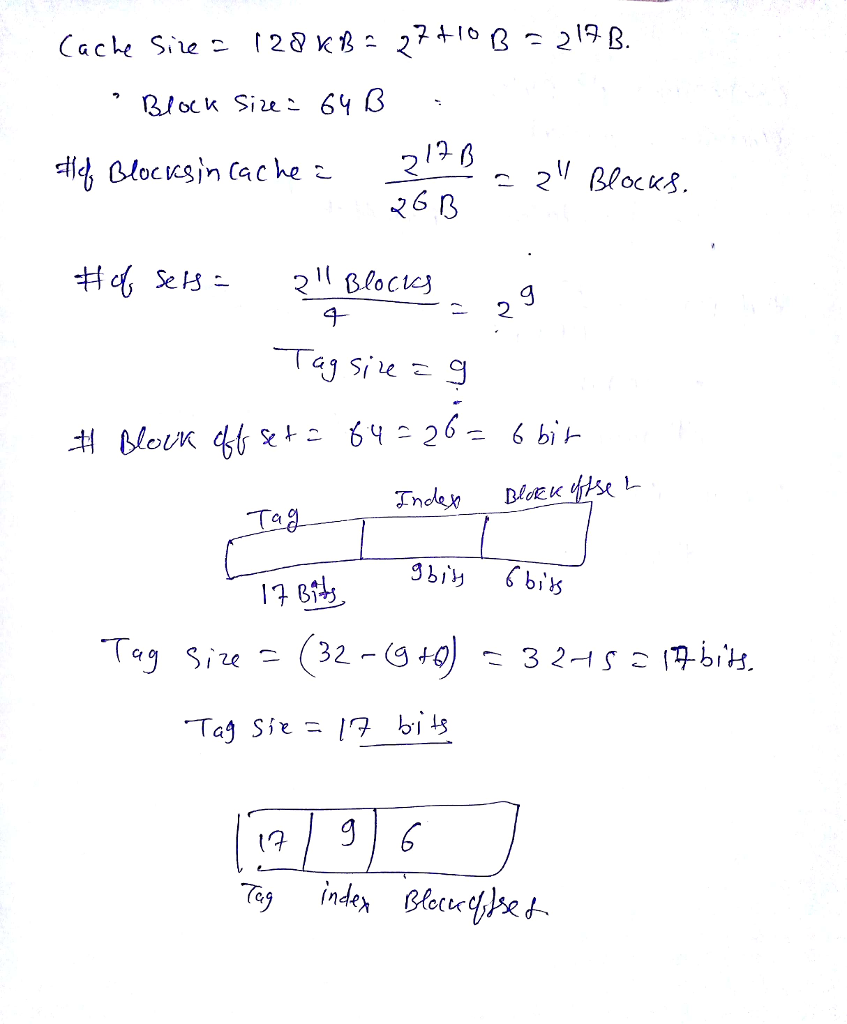 Cache Size = 128 KB = 2^7+10 B = 2^17 B.
Block Size = 64 B
# of Blocks in Cache = 2^17 B / 2^6 B = 2^11 Blocks.
# of Sets = 2^11 Blocks / 4 = 2^9
Tag size = 9
# Block offset = 64 = 2^6 = 6 bit
Tag Index Block offset
17 Bits 9 bits 6 bits
Tag Size = (32 - (9+6)) = 32-15 = 17 bits.
Tag Size = 17 bits
17 9 6
Tag index Block offset